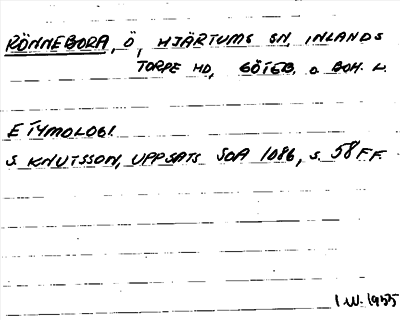 RÖNNEBORA, Ö, HJÄRTUMS SN, INLANDS
TORPE HD, GÖTEB. O. BOH. L.
ETYMOLOGI.
S KNUTSSON, UPPSATS SOA 1086, S. 58 FF.
I.W. 1955